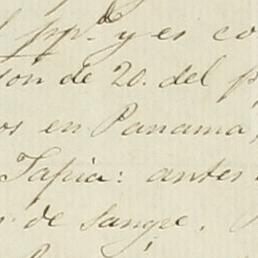 pp.do y es co
son de 20. del p
os en Panamá
Tapia: antes
de Sangre.